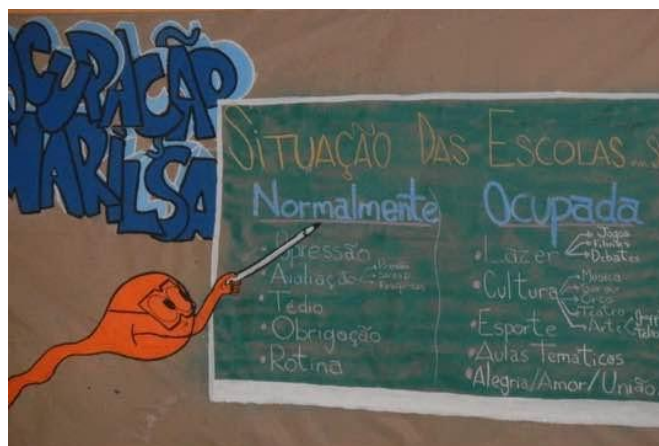 OCUPAÇÃO
MARILSA
SITUAÇÃO DAS ESCOLAS...S
Normalmente
• Opressão
• Avaliação
• Tédio
• Obrigação
• Rotina
Ocupada
• Lazer → Jogos
→ Filmes
→ Debates
• Cultura → Música
→ Sarau
→ Circo
→ Teatro
→ Arte
• Esporte
• Aulas Temáticas
• Alegria/Amor/União